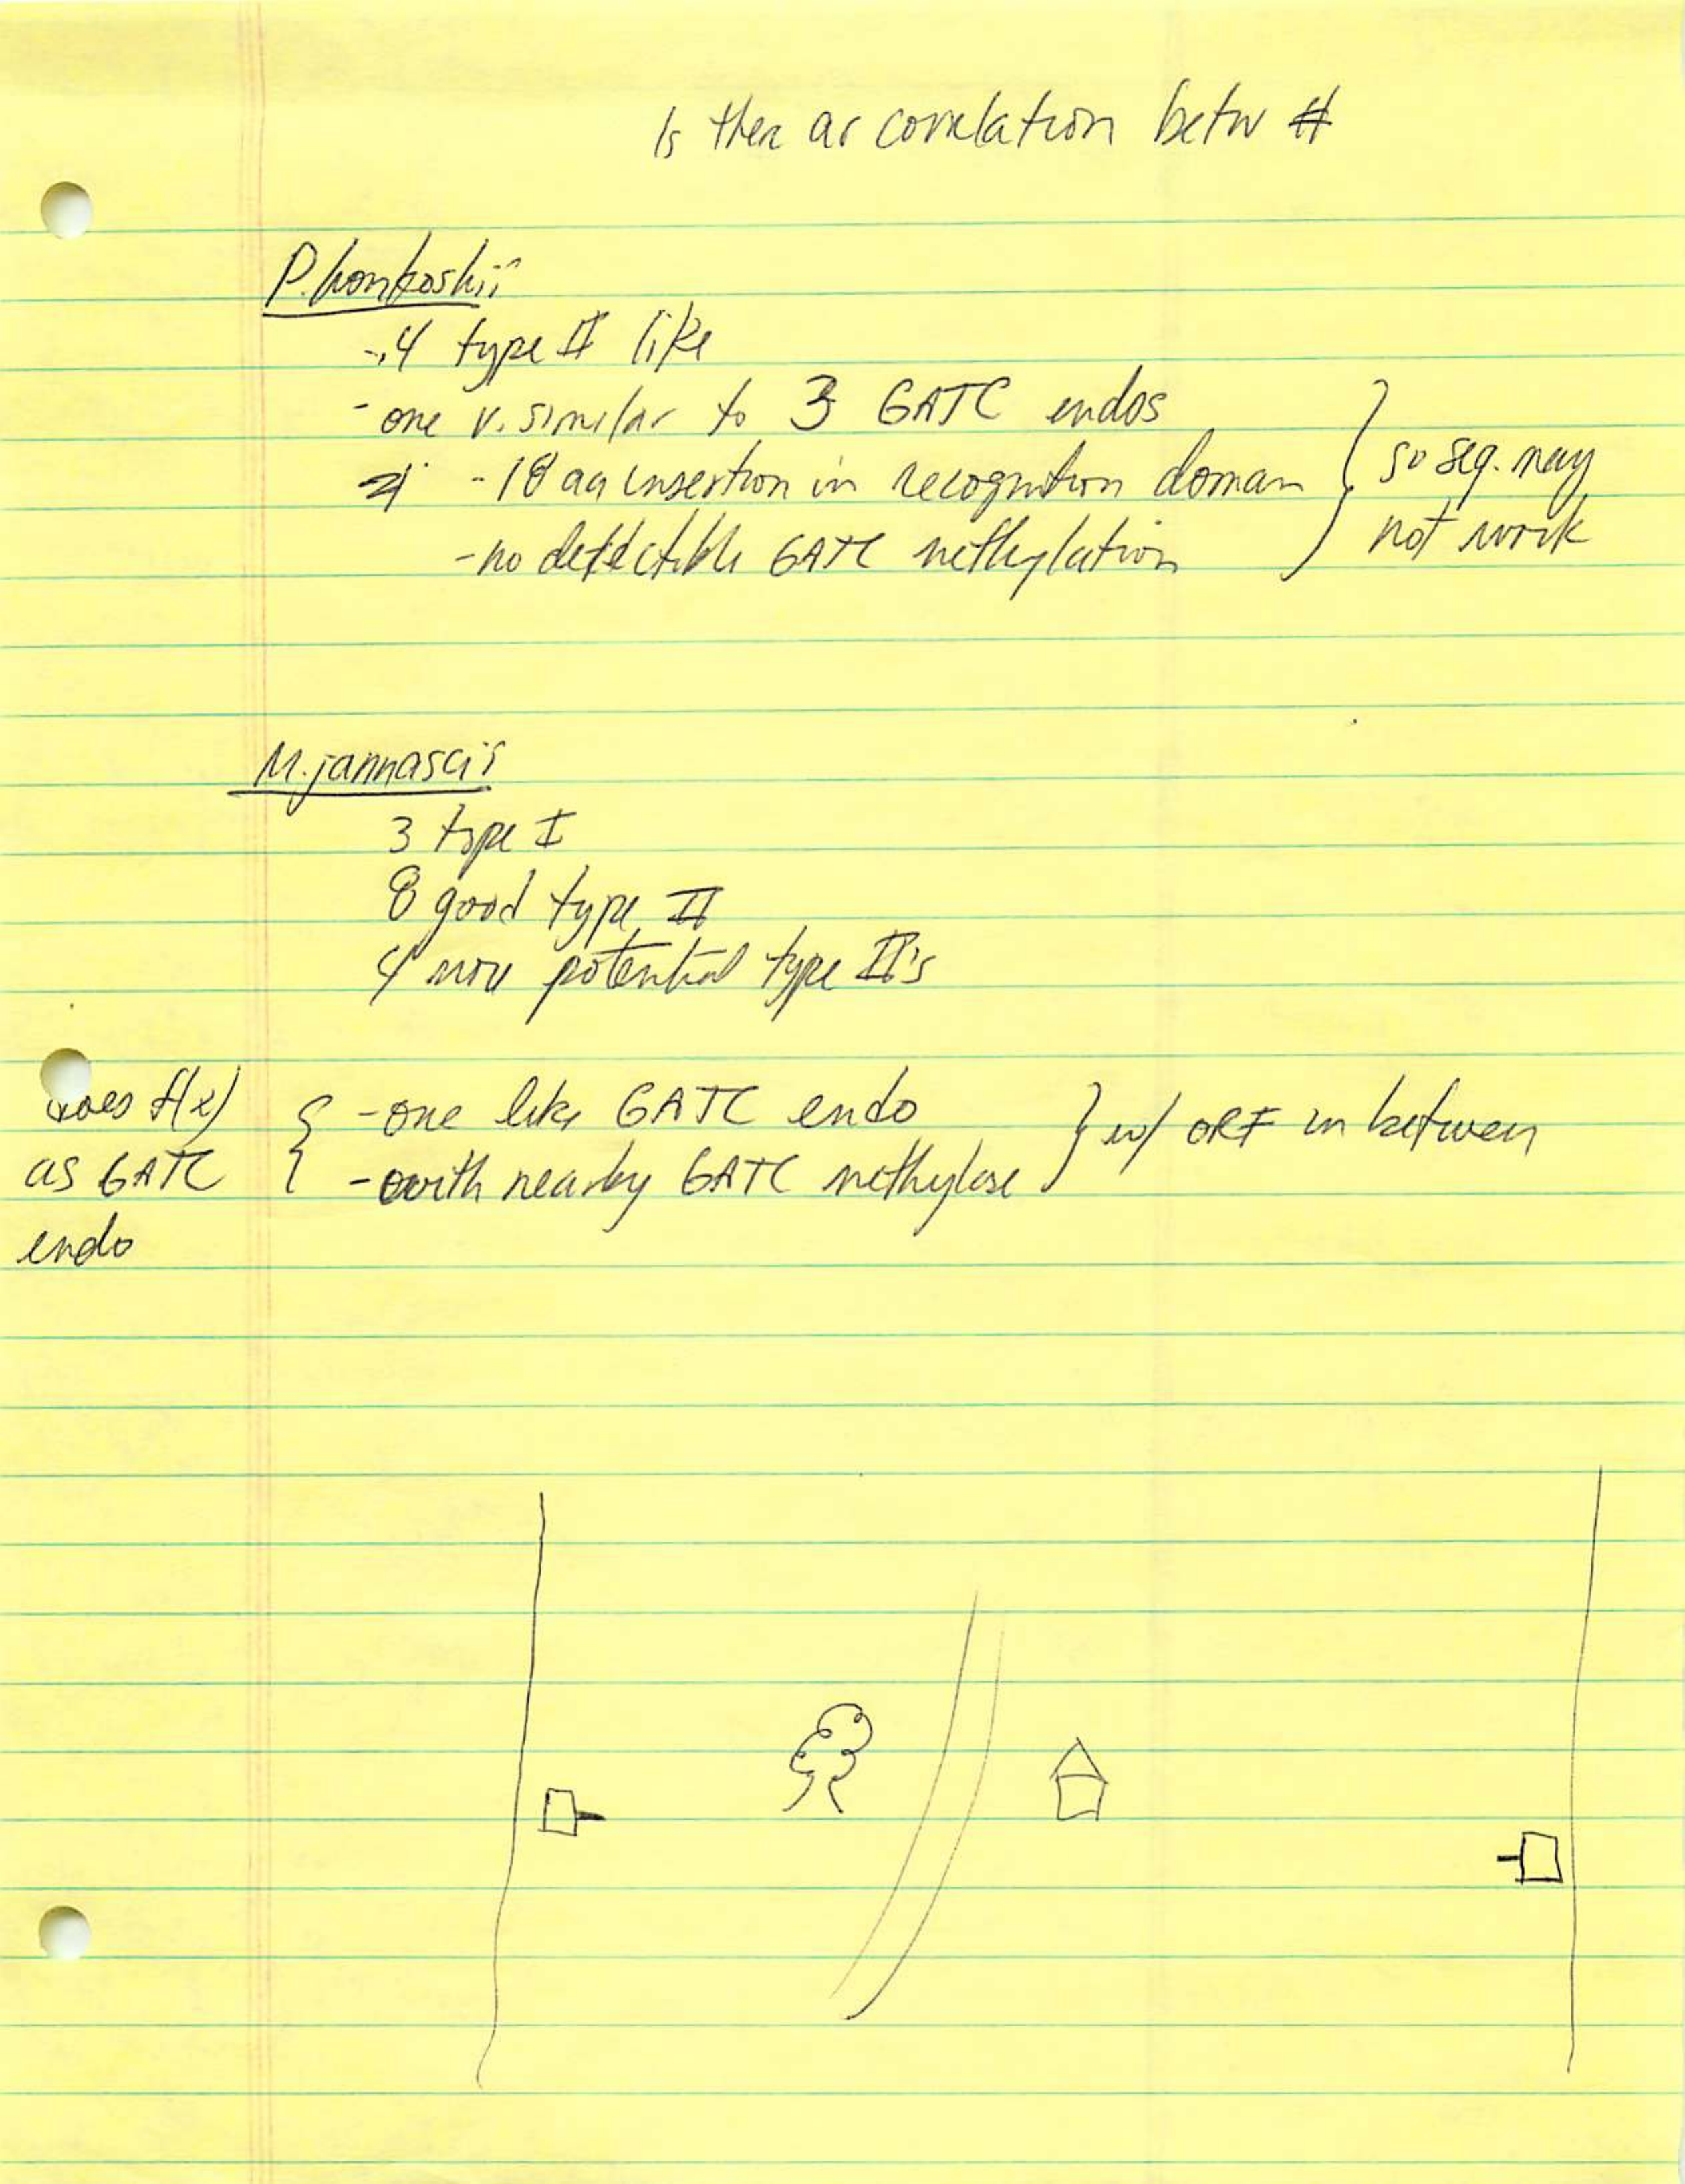 Is there a correlation betw #
P. horikoshii
- 4 type II like
- one v. similar to 3 GATC endos
- 18 aa insertion in recognition domain } so seq. may
- no detectible GATC methylation } not work
M. jannascii
3 type I
8 good type II
4 more potential type II's
does f(x) { - one like GATC endo } w/ ORF in between
as GATC { - with nearby GATC methylase
endo